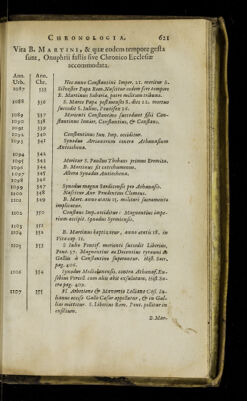 CHRONOLOGIA. 621
Vita B. MARTINI, & quæ eodem tempore gesta
sunt, Onuphrii fastis sive Chronico Ecclesiæ
accommodata.
Ann. Ann.
Urb. Chr.
1087 335 Hoc anno Constantini Imper. 21. moritur S.
Silvester Papa Rom. Nascitur eodem fere tempore
B. Martinus Sabaria, patre militum tribuno.
1088 336 S. Marco Papæ post menses 8. dies 22. mortuo
succedit S. Julius, Pontifex 36.
1089 337 Morienti Constantino succedunt filii Con-
1090 338 stantinus Junior, Constantius, & Constans.
1091 339
1092 340 Constantinus Jun. Imp. occiditur.
1093 341 Synodus Arrianorum contra Athanasium
Antiochena.
1094 342
1095 343 Moritur S. Paullus Thebæus primus Eremita.
1096 344 B. Martinus fit catechumenus.
1097 345 Altera Synodus Antiochena.
1098 346
1099 347 Synodus magna Sardicensis pro Athanasio.
1100 348 Nascitur Aur. Prudentius Clemens.
1101 349 B. Mart. anno ætatis 15. militari sacramento
implicatur.
1102 350 Constans Imp. occiditur: Magnentius impe-
rium arripit. Synodus Syrmiensis.
1103 351
1104 352 B. Martinus baptizatur, anno ætatis 18. in
Vita cap. 11.
1105 353 S. Julio Pontif. morienti succedit Liberius,
Pont. 37. Magnentius ac Decentius tyranni &
Galliis à Constantino superantur. Hist. Sacr.
pag. 406.
1106 354 Synodus Mediolanensis, contra Athanas. Eu-
sebius Vercell. cum aliis abit exsulatum, Hist. Sa-
cra pag. 402.
1107 355 Fl. Arbetione & Mavortio Lolliano Coss. Ju-
lianus occiso Gallo Cæsar appellatur, & in Gal-
lias mittitur. S. Liberius Rom. Pont. pellitur in
exsilium.
B. Mar-